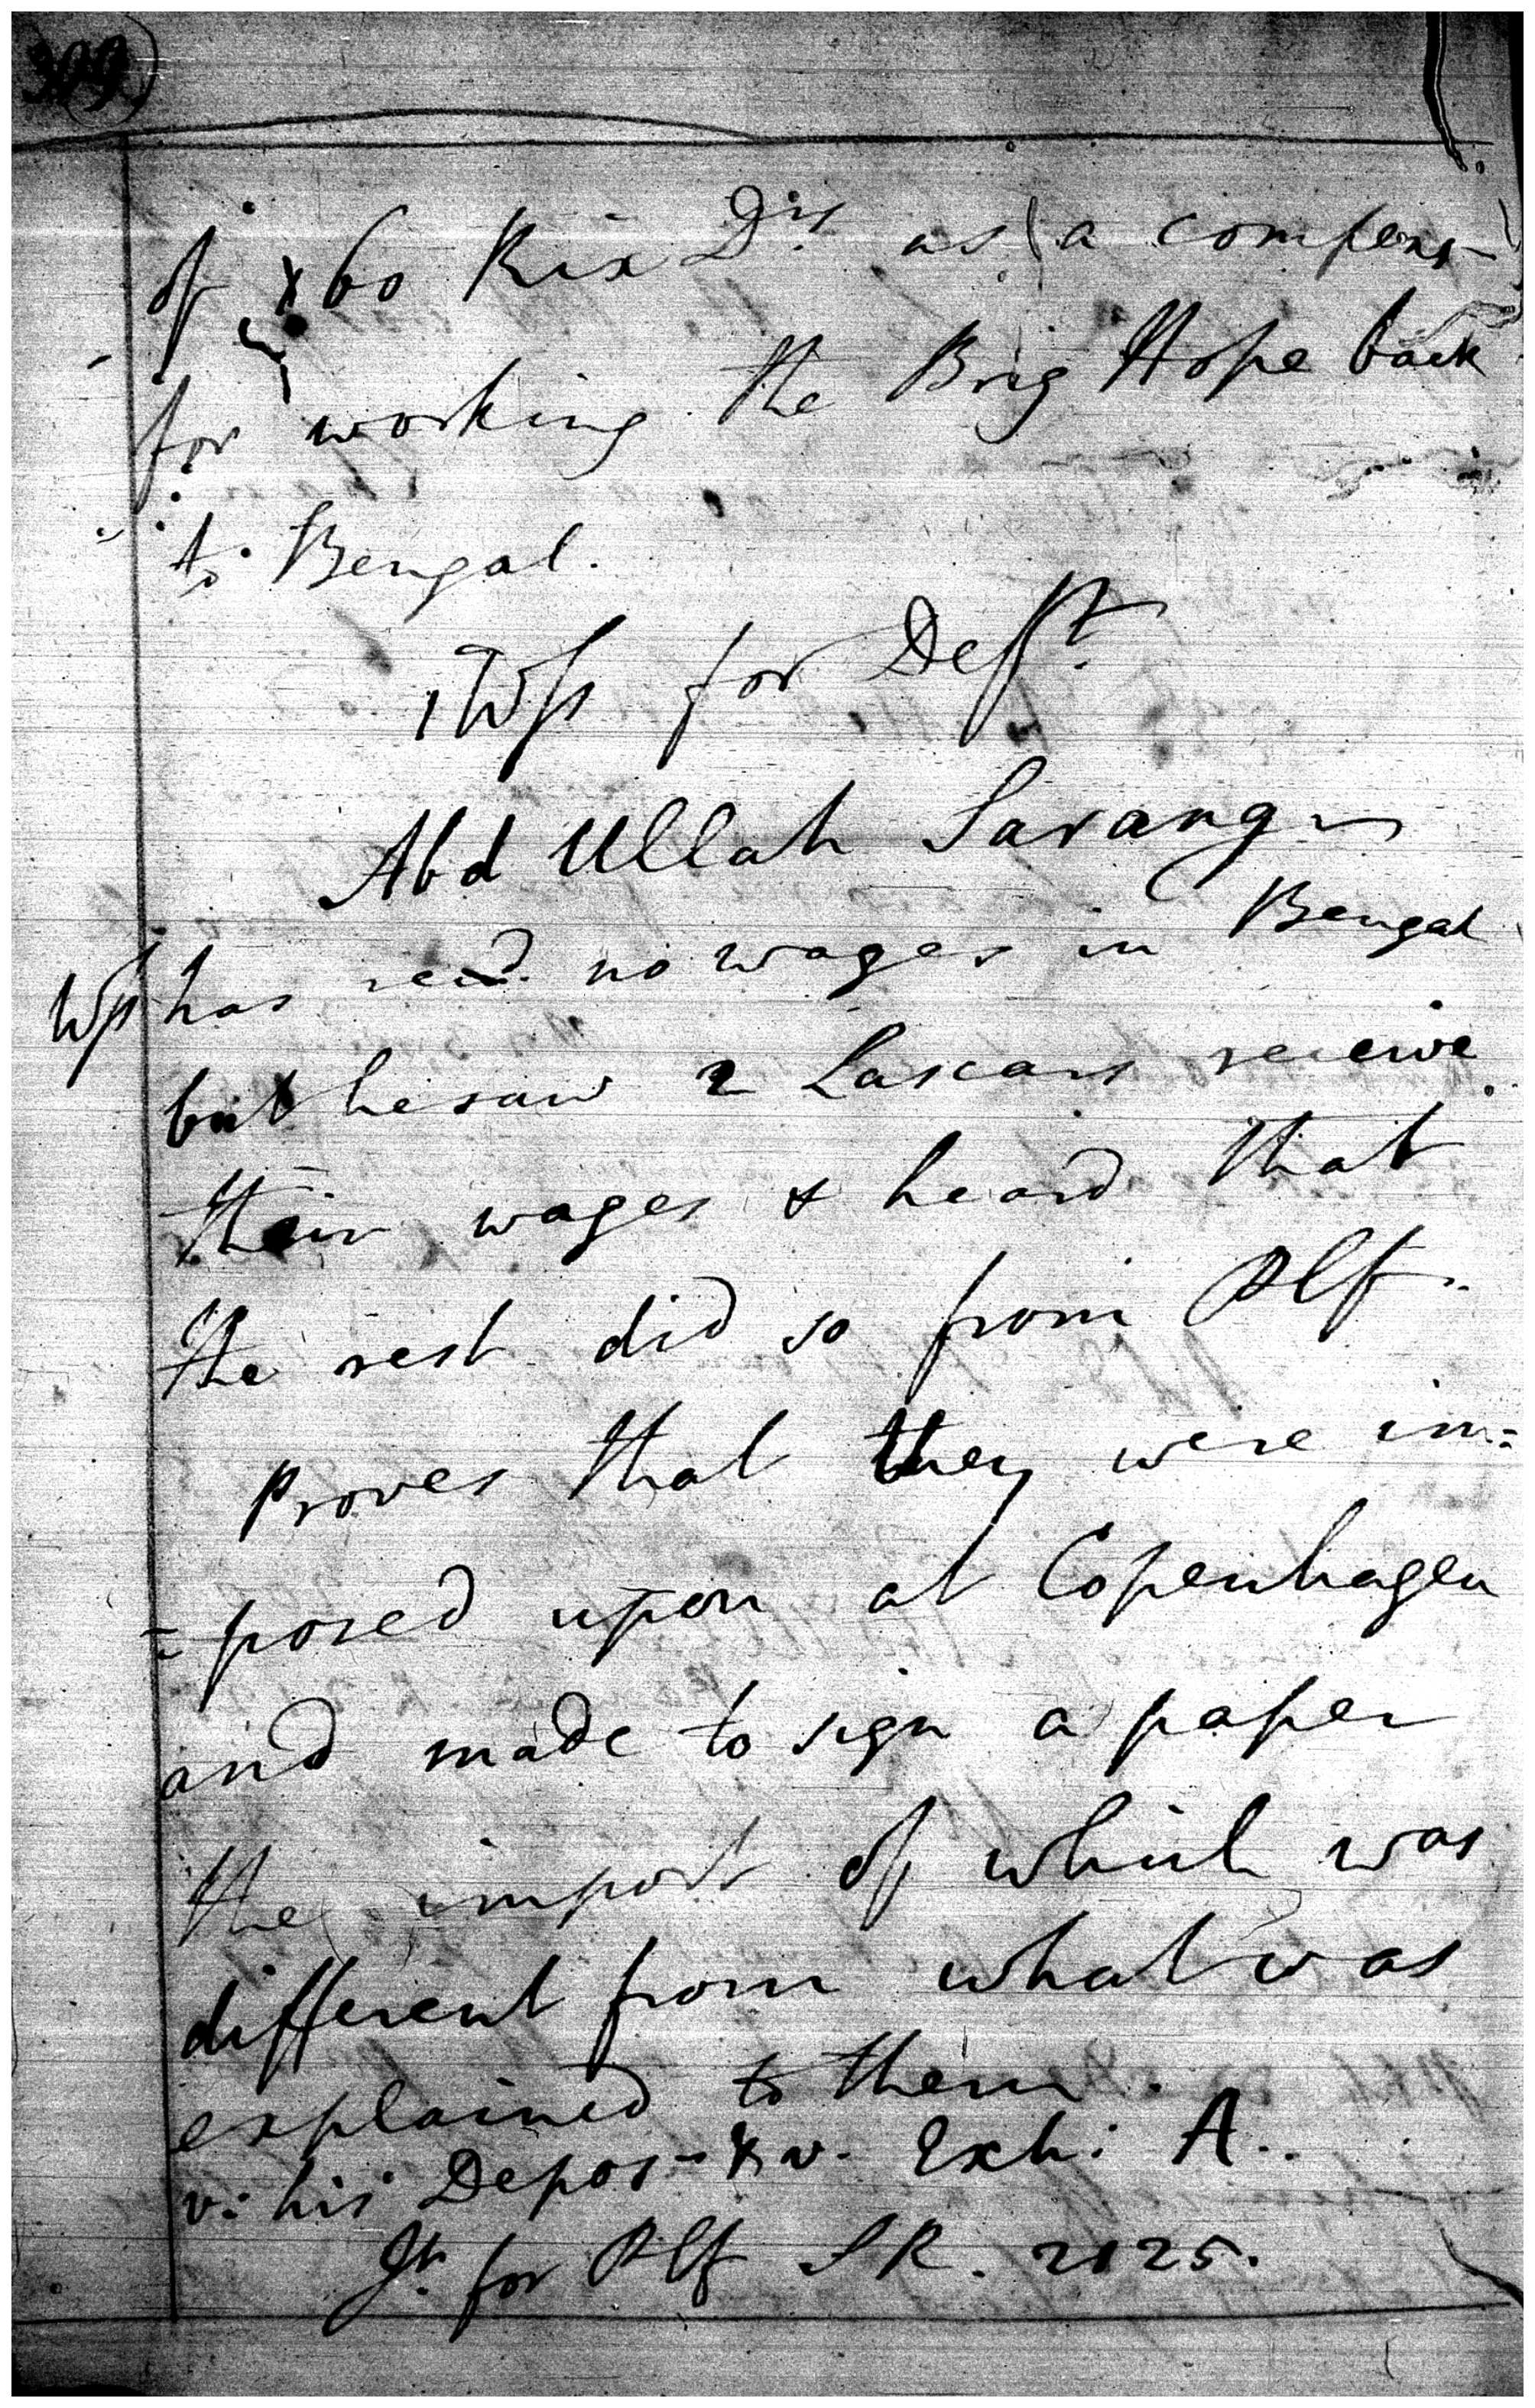 of 60 Rix Drs as a compens-
for working the Brig Hope back
to Bengal.
1 Wss for Deft.
Abd Ullah Sarang
Wss has recd. no wages in Bengal
but he saw 2 Lascars receive
their wages & heard that
the rest did so from Plf.
proves that they were im=
=posed upon at Copenhagen
and made to sign a paper
the import of which was
different from what was
explained to them.
v: his Depos- & v. Exhi A.
Jt. for Plf SR. 2025.